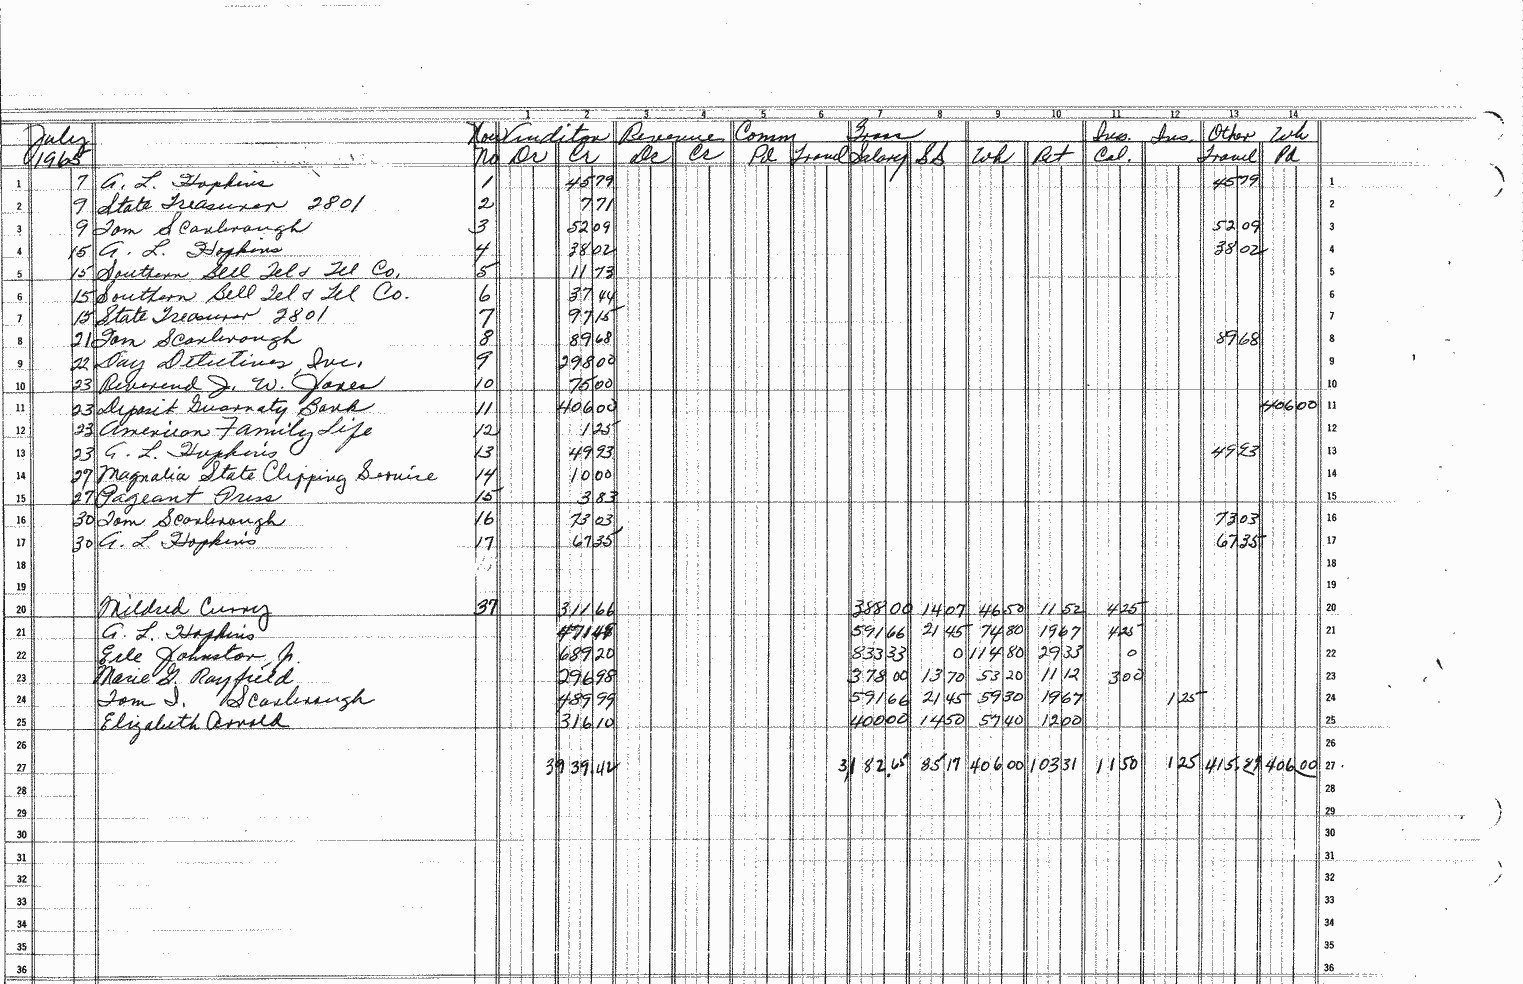 1 2 3 4 5 6 7 8 9 10 11 12 13 14
July Revenue Comm Ins. Ins. Other Wh
1965 No Dr Cr Dr Cr Pd Travel Salary SS Wh Ret Cal. Travel Pd
1 7 A. L. Hopkins 1 45 79 45 79 1
2 9 State Treasurer 2801 2 7 71 2
3 9 Tom Scarbrough 3 52 09 52 09 3
4 15 A. L. Hopkins 4 38 02 38 02 4
5 15 Southern Bell Tel & Tel Co. 5 11 73 5
6 15 Southern Bell Tel & Tel Co. 6 37 44 6
7 15 State Treasurer 2801 7 97 15 7
8 21 Tom Scarbrough 8 89 68 89 68 8
9 22 Day Detectives, Inc. 9 298 00 9
10 23 Reverend J. W. Jones 10 75 00 10
11 23 Deposit Guarnaty Bank 11 406 00 406 00 11
12 23 American Family Life 12 1 25 12
13 23 A. L. Hopkins 13 49 93 49 93 13
14 27 Magnolia State Clipping Service 14 10 00 14
15 27 Pageant Press 15 3 83 15
16 30 Tom Scarbrough 16 73 03 73 03 16
17 30 A. L Hopkins 17 67 35 67 35 17
18 18
19 19
20 Mildred Curry 37 311 66 388 00 14 07 46 50 11 52 4 25 20
21 A. L. Hopkins 471 48 591 66 21 45 74 80 19 67 4 25 21
22 Erle Johnston Jr. 689 20 833 33 0 114 80 29 33 0 22
23 Marie G. Rayfield 296 98 378 00 13 70 53 20 11 12 3 00 23
24 Tom I. Scarbrough 489 99 591 66 21 45 59 30 19 67 1 25 24
25 Elizabeth Arnold 316 10 400 00 14 50 57 40 12 00 25
26 26
27 3939.42 3182.65 85 17 406 00 103 31 11 50 1 25 415.89 406 00 27
28 28
29 29
30 30
31 31
32 32
33 33
34 34
35 35
36 36